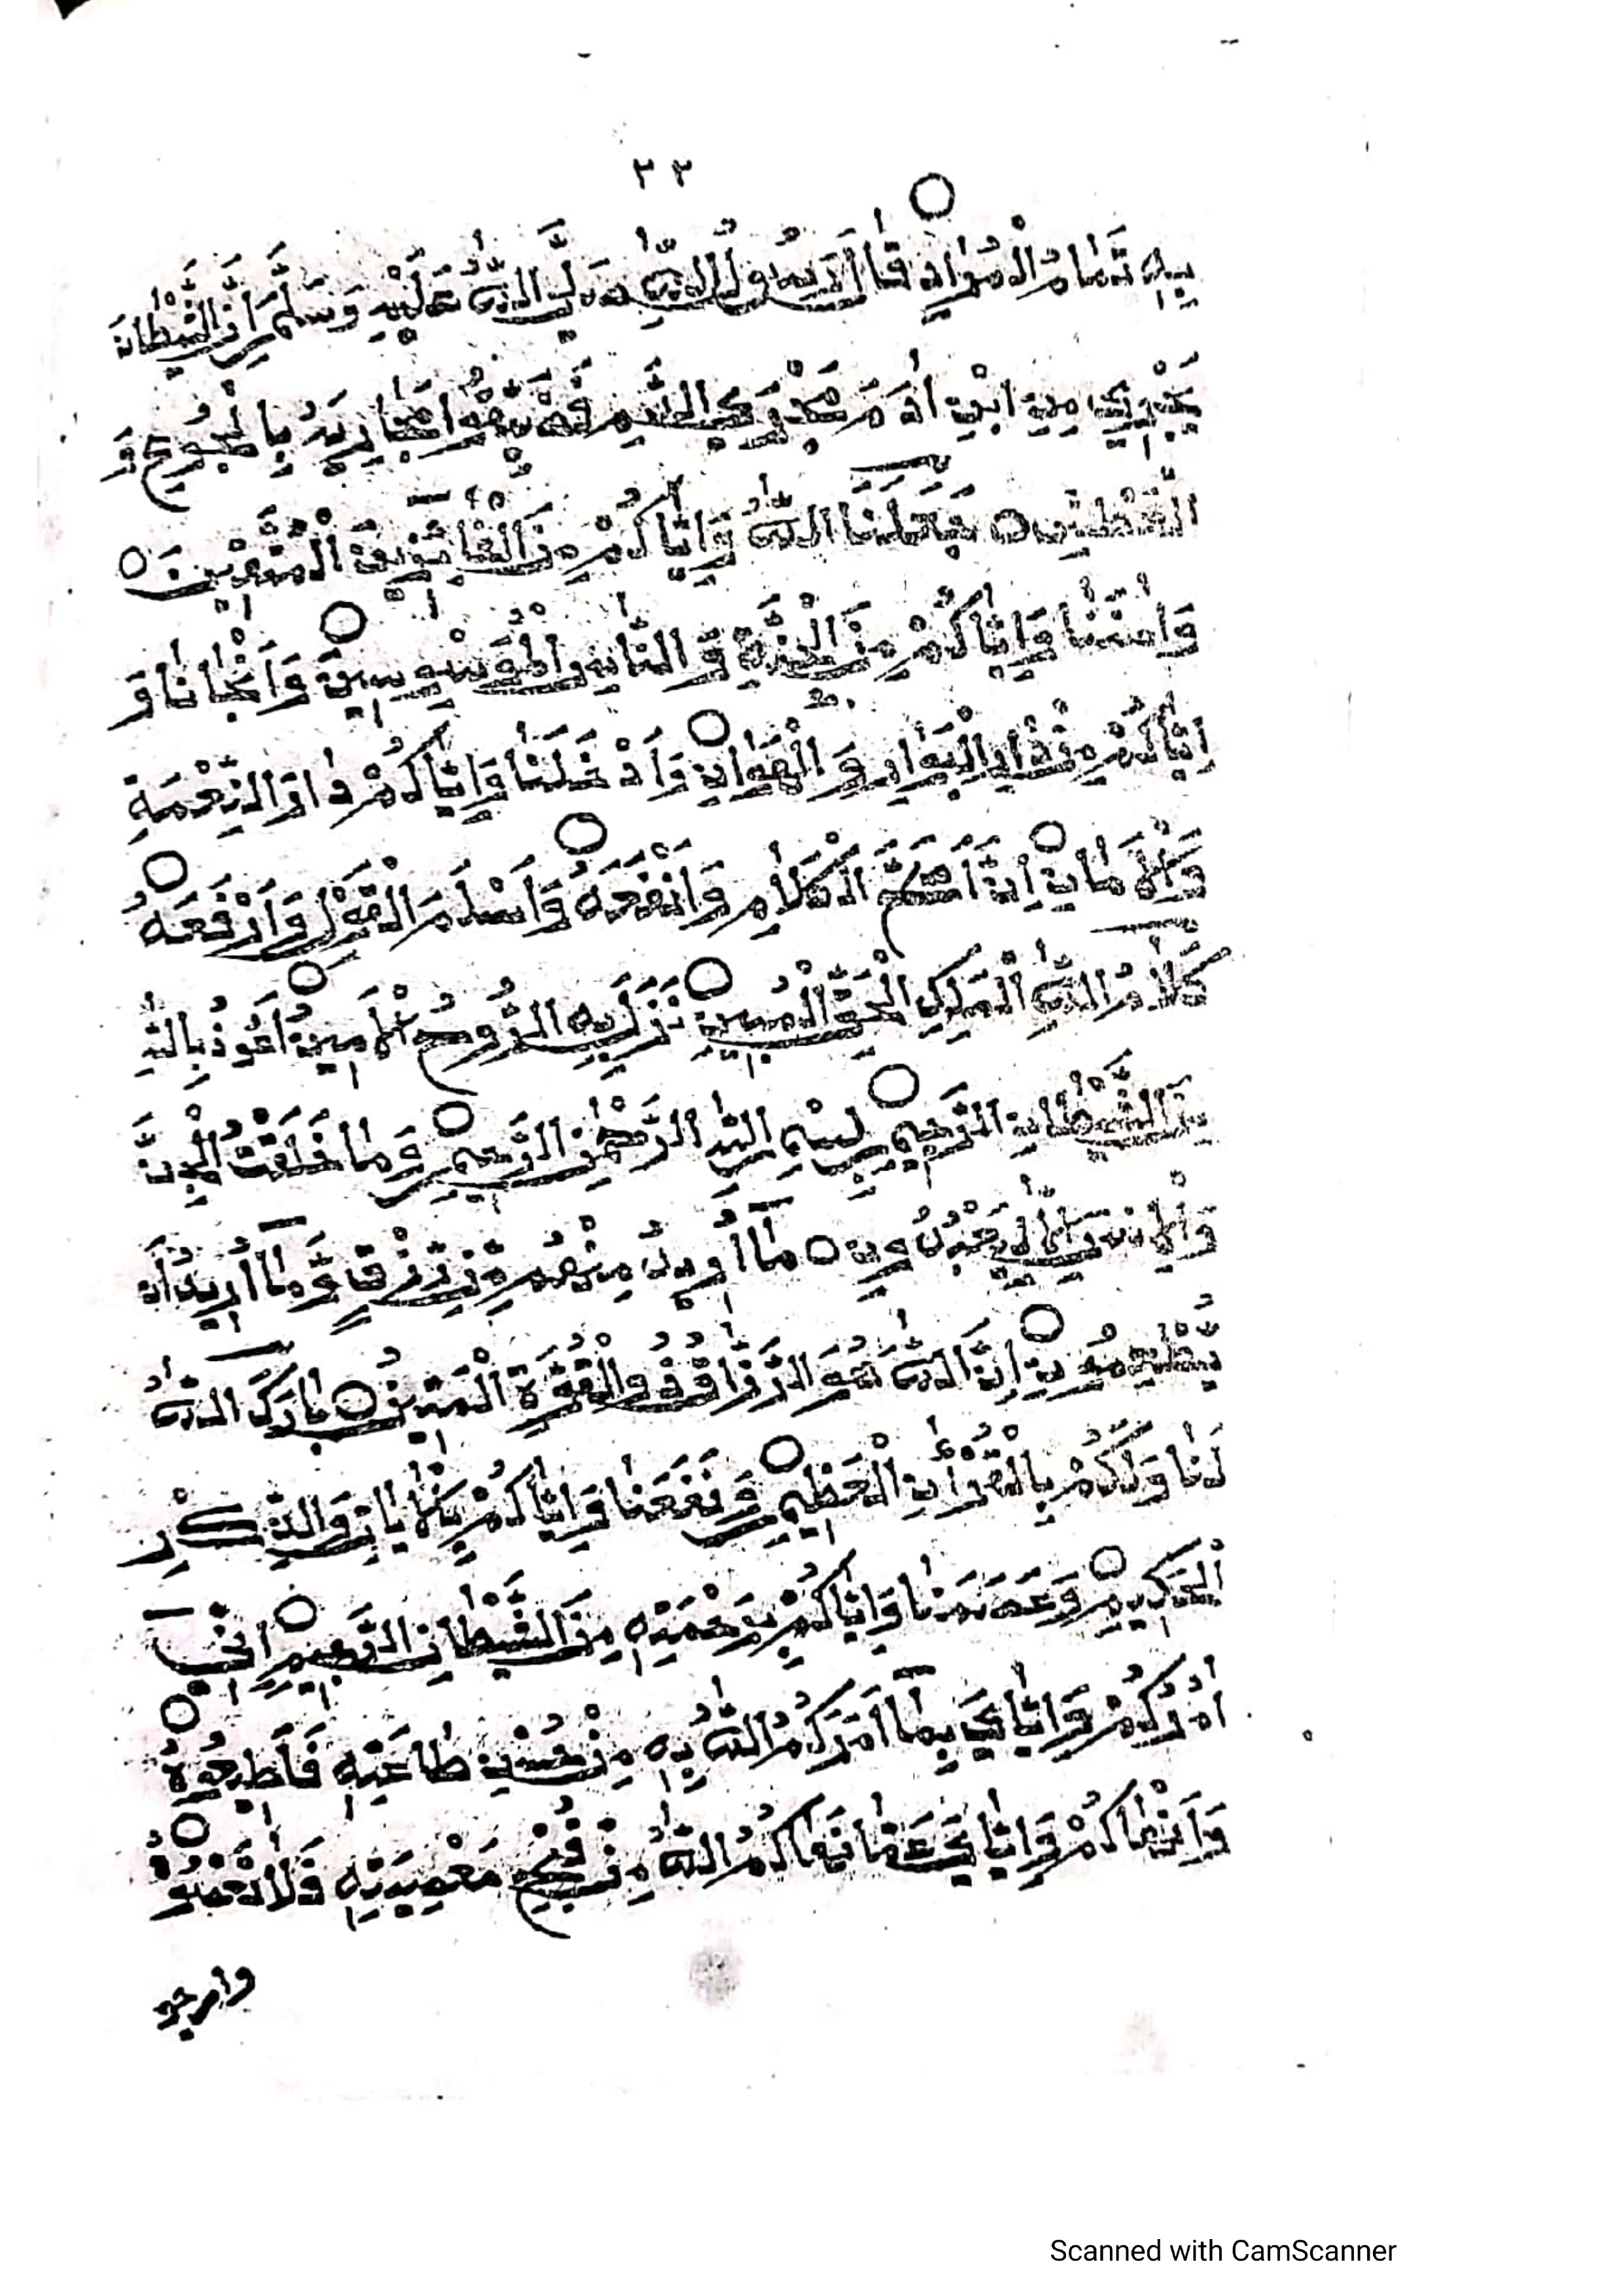 ٢٣
بِهِ تَمَامُ الْمُرَادِ قَالَ رَسُولُ اللّٰهِ صَلَّى اللّٰهُ عَلَيْهِ وَسَلَّمَ إِنَّ الشَّيْطَانَ
يَجْرِي مِنِ ابْنِ اٰدَمَ مَجْرَى الدَّمِ فَضَيِّقُوا مَجَارِيَهُ بِالْجُوعِ وَ
الْعَطَشِ جَعَلَنَا اللّٰهُ وَإِيَّاكُمْ مِنَ الْفَائِزِينَ الْمُقَرَّبِينَ
وَإِيَّاكُمْ مِنَ وَالنَّاسِ وَأَنْجَانَا وَ
إِيَّاكُمْ مِنْ دَارِ الْبَوَارِ وَ الْهَوَانِ وَأَدْخَلَنَا وَإِيَّاكُمْ دَارَ النِّعْمَةِ
وَالْأَمَانِ إِنَّ الْكَلَامِ وَأَنْفَعَهُ وَأَسْلَمَ الْقَوْلِ وَأَرْفَعَهُ
كَلَامُ اللّٰهِ الْمَلِكِ الْحَقِّ الْمُبِينِ نَزَلَ بِهِ الرُّوحُ الْأَمِينُ أَعُوذُ بِاللّٰهِ
مِنَ الشَّيْطَانِ الرَّجِيمِ بِسْمِ اللّٰهِ الرَّحْمٰنِ الرَّحِيمِ وَمَا خَلَقْتُ الْجِنَّ
وَالْإِنْسَ إِلَّا لِيَعْبُدُونِ مَا أُرِيدُ مِنْهُمْ مِنْ رِزْقٍ وَّمَا أُرِيدُ أَنْ
يُطْعِمُونِ إِنَّ اللّٰهَ هُوَ الرَّزَّاقُ ذُو الْقُوَّةِ الْمَتِينُ بَارَكَ اللّٰهُ
لَنَا وَلَكُمْ بِالْقُرْاٰنِ الْعَظِيمِ وَنَفَعَنَا وَإِيَّاكُمْ بِالْاٰيَاتِ وَالذِّكْرِ
الْحَكِيمِ وَعَصَمَنَا وَإِيَّاكُمْ بِرَحْمَتِهِ مِنَ الشَّيْطَانِ الرَّجِيمِ إِنِّي
اٰمُرُكُمْ وَإِيَّايَ بِمَا أَمَرَكُمُ اللّٰهُ بِهِ مِنْ حُسْنِ طَاعَتِهِ فَأَطِيعُوهُ
وَأَنْهَاكُمْ وَإِيَّايَ عَمَّا نَهَاكُمُ اللّٰهُ مِنْ قُبْحِ مَعْصِيَتِهِ فَلَا تَعْصُوهُ
وارجو
Scanned with CamScanner